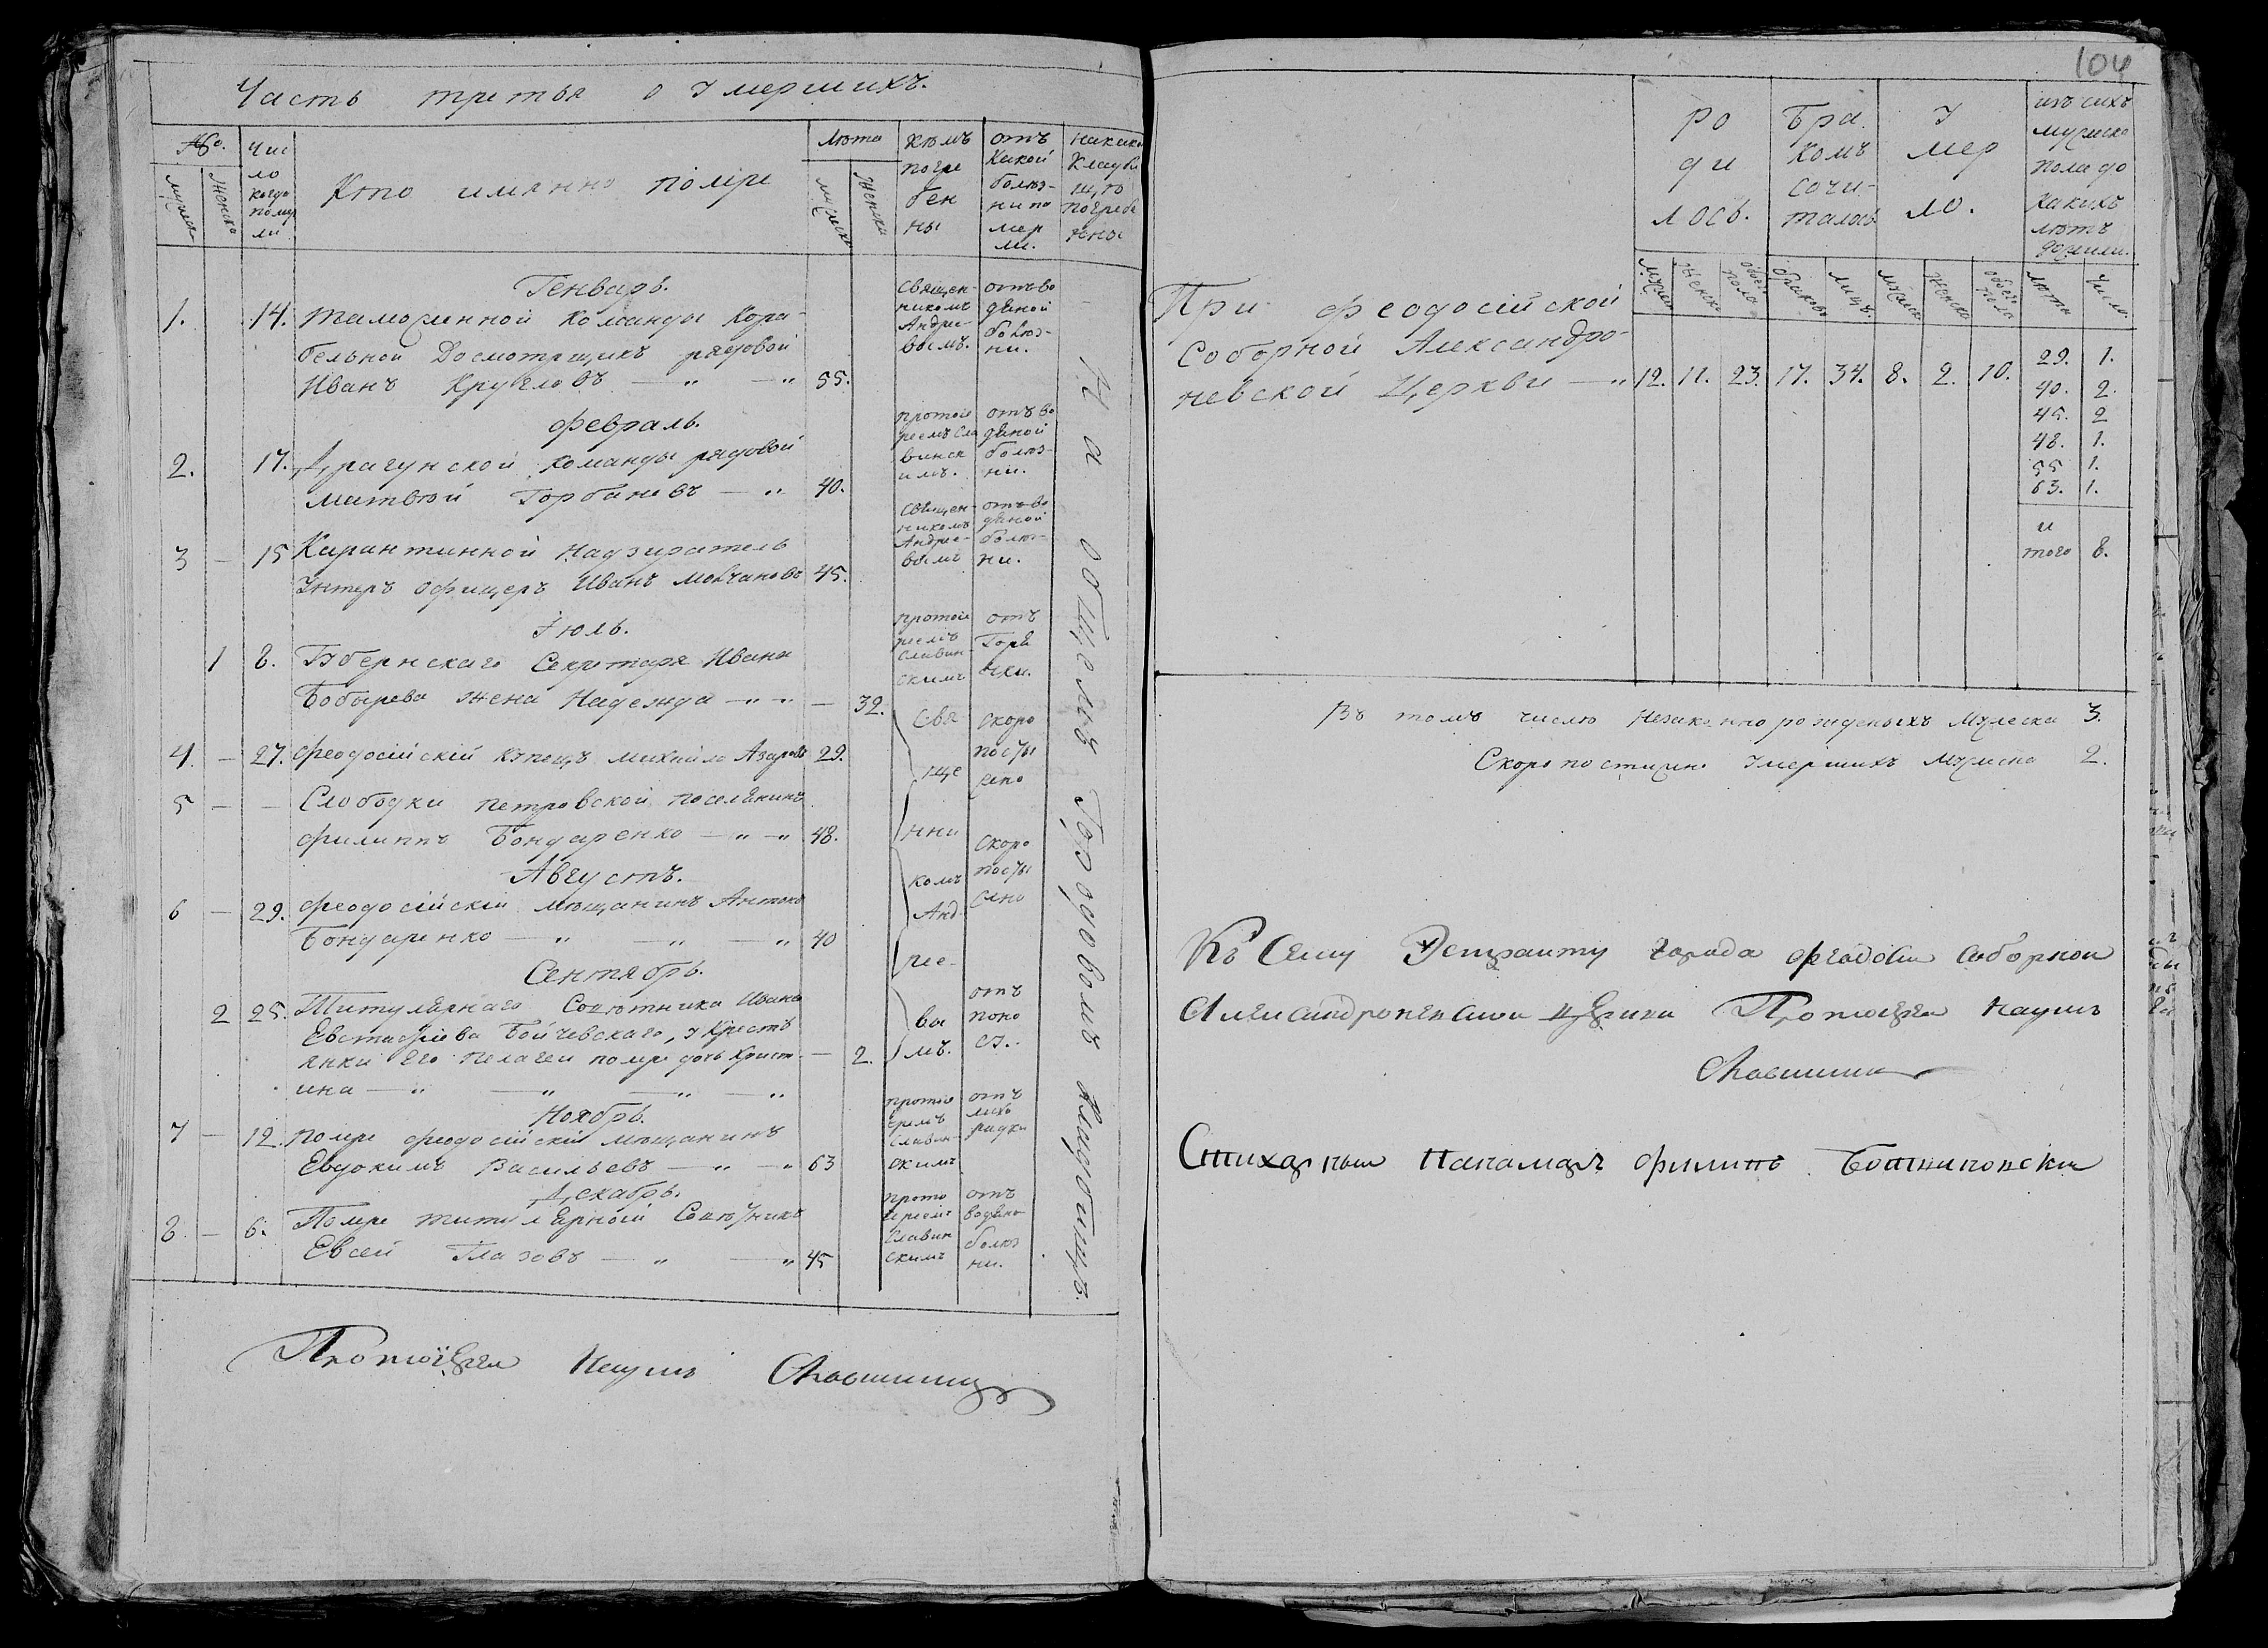 Часть третья о умершихъ.
№.
Мужеск
Женска
Чис
ло
когда
поме
ли
Кто имянно помре
Лѣта
мужеска
Женска
кѣмъ
погре
бен
ны
отъ
Какой
болѣз-
ни по
мер
ли.
на како
Кладби
щѣ
погребе
нны
Генварь.
1. 14. Таможенной Команды Кора-
бельной Досмотрщикъ рядовой
Иванъ Кругловъ — „ — „ 55.
Священ-
никомъ
Андре-
вымъ.
отъ во
дяной
болѣз-
ни.
Февраль.
2. 17. Драгунской команды рядовой
Матвѣй Горбаневъ — „ 40.
протоіе
реемъ Сла
винск
имъ.
отъ во
дяной
болѣз-
ни.
3 — 15 Карантинной Надзиратель
Унтеръ Офицеръ Иванъ Молчановъ 45.
Священ-
никомъ
Андре-
вымъ
отъ во
дяной
болѣз-
ни.
Іюль.
1 8. Губернскаго Секретаря Ивана
Бобырева жена Надежда — „ — „ — 32.
протоіе
реемъ
Славин-
скимъ
отъ
Горя
чки.
4. — 27. Феодосійскій Купецъ Михайло Азаровъ 29.
скоро
посты
жно
5 — — Слободки Петровской поселянинъ
Филиппъ Бондаренко — „ — „ 48.
скоро
посты
жно
Августъ.
6 — 29. Феодосійскій мѣщанинъ Антонъ
Бондаренко — „ — „ — „ 40
Сентябрь.
2 25. Титулярнаго Совѣтника Ивана
Евстафіева Бойчевскаго, у Крестъ
янки Его Пелагеи помре дочь Христ- — 2.
ина — „ — „ — „ — „
Свя
ще
нни
комъ
Анд-
рее-
вы
мъ.
отъ
поно
су.
Ноябрь.
7 — 12. Помре Феодосійскій мѣщанинъ
Евдокимъ Васильевъ — „ — „ 63
протоі
ереемъ
Славин-
скимъ
отъ
лихо
радки
Декабрь.
8. — 6. Помре титулярный Совѣтникъ
Евсей Глазовъ — „ — „ 45
прото
іреемъ
Славин
скимъ
отъ
водяно
болѣз
ни.
На общемъ Городовомъ кладбищѣ.
Протоіерей Наумъ Славинский
104
Ро
ди
лось.
Бра
комъ
сочи-
талось
У
мер
ло.
изъ сихъ
мужеска
пола до
какихъ
лѣтъ
дожили.
Мужес
Женска
обоего
пола
браковъ
лицъ.
Мужеск
Женска
обоего
пола
лѣта
Число.
При Феодосійской
Соборной Александро-
невской Церкви — „ 12. 11. 23. 17. 34. 8. 2. 10.
29. 1.
40. 2.
45. 2
48. 1.
55 1.
63. 1.
и
того 8.
Въ томъ числѣ Незаконно рожденыхъ Мужеска 3.
Скоропостижно умершихъ Мужска 2.
Къ Сему Экстракту города Феодосіи Соборной
Александроневской церкви Протоіерей Наумъ
Славинский
Стихарный Пономарь Филипъ